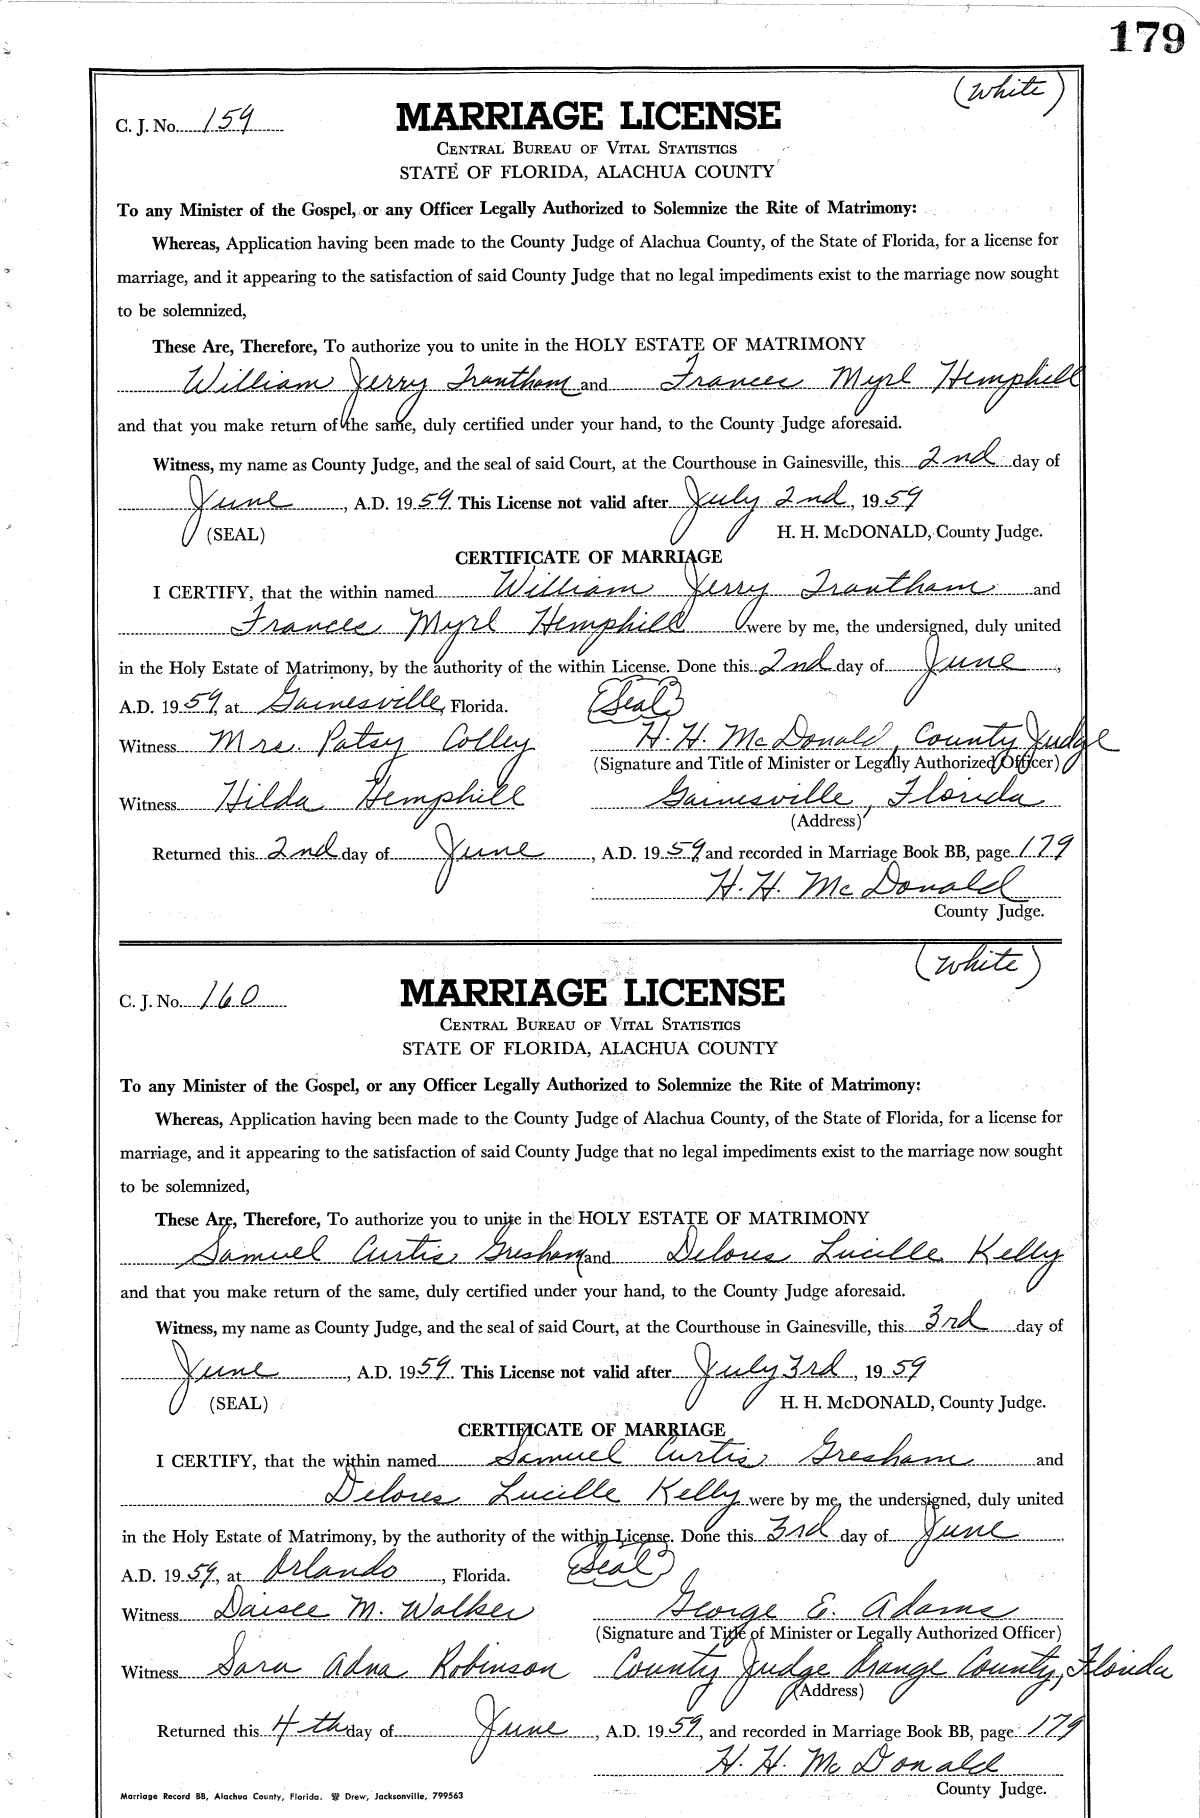 179
(White)
C. J. No. 159
MARRIAGE LICENSE
CENTRAL BUREAU OF VITAL STATISTICS
STATE OF FLORIDA, ALACHUA COUNTY
To any Minister of the Gospel, or any Officer Legally Authorized to Solemnize the Rite of Matrimony:
Whereas, Application having been made to the County Judge of Alachua County, of the State of Florida, for a license for
marriage, and it appearing to the satisfaction of said County Judge that no legal impediments exist to the marriage now sought
to be solemnized,
These Are, Therefore, To authorize you to unite in the HOLY ESTATE OF MATRIMONY
William Jerry Trantham and Frances Myrl Hemphill
and that you make return of the same, duly certified under your hand, to the County Judge aforesaid.
Witness, my name as County Judge, and the seal of said Court, at the Courthouse in Gainesville, this 2nd day of
June, A.D. 1959. This License not valid after July 2nd, 1959
(SEAL) H. H. McDONALD, County Judge.
CERTIFICATE OF MARRIAGE
I CERTIFY, that the within named William Jerry Trantham and
Frances Myrl Hemphill were by me, the undersigned, duly united
in the Holy Estate of Matrimony, by the authority of the within License. Done this 2nd day of June,
A.D. 1959, at Gainesville, Florida. (Seal)
Witness Mrs. Patsy Colley H. H. McDonald, County Judge
(Signature and Title of Minister or Legally Authorized Officer)
Witness Hilda Hemphill Gainesville, Florida
(Address)
Returned this 2nd day of June, A.D. 1959, and recorded in Marriage Book BB, page 179
H. H. McDonald
County Judge.
(White)
C. J. No. 160
MARRIAGE LICENSE
CENTRAL BUREAU OF VITAL STATISTICS
STATE OF FLORIDA, ALACHUA COUNTY
To any Minister of the Gospel, or any Officer Legally Authorized to Solemnize the Rite of Matrimony:
Whereas, Application having been made to the County Judge of Alachua County, of the State of Florida, for a license for
marriage, and it appearing to the satisfaction of said County Judge that no legal impediments exist to the marriage now sought
to be solemnized,
These Are, Therefore, To authorize you to unite in the HOLY ESTATE OF MATRIMONY
Samuel Curtis Gresham and Delores Lucille Kelly
and that you make return of the same, duly certified under your hand, to the County Judge aforesaid.
Witness, my name as County Judge, and the seal of said Court, at the Courthouse in Gainesville, this 3rd day of
June, A.D. 1959. This License not valid after July 3rd, 1959
(SEAL) H. H. McDONALD, County Judge.
CERTIFICATE OF MARRIAGE
I CERTIFY, that the within named Samuel Curtis Gresham and
Delores Lucille Kelly were by me, the undersigned, duly united
in the Holy Estate of Matrimony, by the authority of the within License. Done this 3rd day of June
A.D. 1959, at Orlando, Florida. (Seal)
Witness Daisee M. Walker George E. Adams
(Signature and Title of Minister or Legally Authorized Officer)
Witness Sara Adna Robinson County Judge Orange County, Florida
(Address)
Returned this 4th day of June, A.D. 1959, and recorded in Marriage Book BB, page 179
H. H. McDonald
County Judge.
Marriage Record BB, Alachua County, Florida. Drew, Jacksonville, 799563